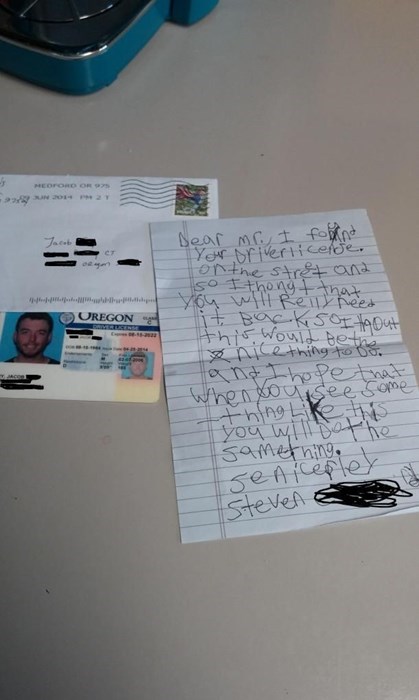 MEDFORD OR 975
03 JUN 2014 PM 2 T
Jacob
CT
Oregon
OREGON
DRIVER LICENSE
Dear mr, I foUnd
Your Driverlicense.
on the stret and
so I thougt that
you will Relly need
it Back so I thout
this would be the
nice thing to do.
and I hope that
when you see some
thing Like this
you will Do the
same thing.
senicerley
Steven